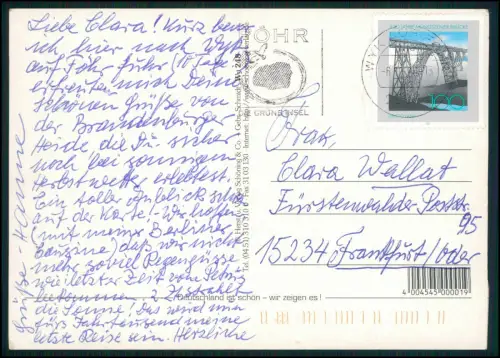 Liebe Clara! Kurz bevor
ich hier nach Wyk
auf Föhr fuhr (10 Tage)
erfreuten mich Deine
schönen Grüße von
der Brandenburger
Heide die Du sicher
noch bei sonnigem
Herbstwetter erlebtest.
Ein toller Anblick so
auf der Karte! Wir hoffen
(mit meiner Berliner
Cousine) daß wir nicht
mehr soviel Regengüsse
wie letzter Zeit vom Petrus
bekommen. z. Z. strahlt
die Sonne! Das wird nun
fürs Jahrtausend meine
letzte Reise sein. Herzliche
Grüße - Hanne
FÖHR
GRÜNE INSEL
WYK
100
Frau,
Clara Wallat
Fürstenwalder Poststr.
95
15234 Frankfurt/Oder
Schöning & Co. + Gebr. Schmidt
Deutschland ist schön – wir zeigen es!
4 004545 000019